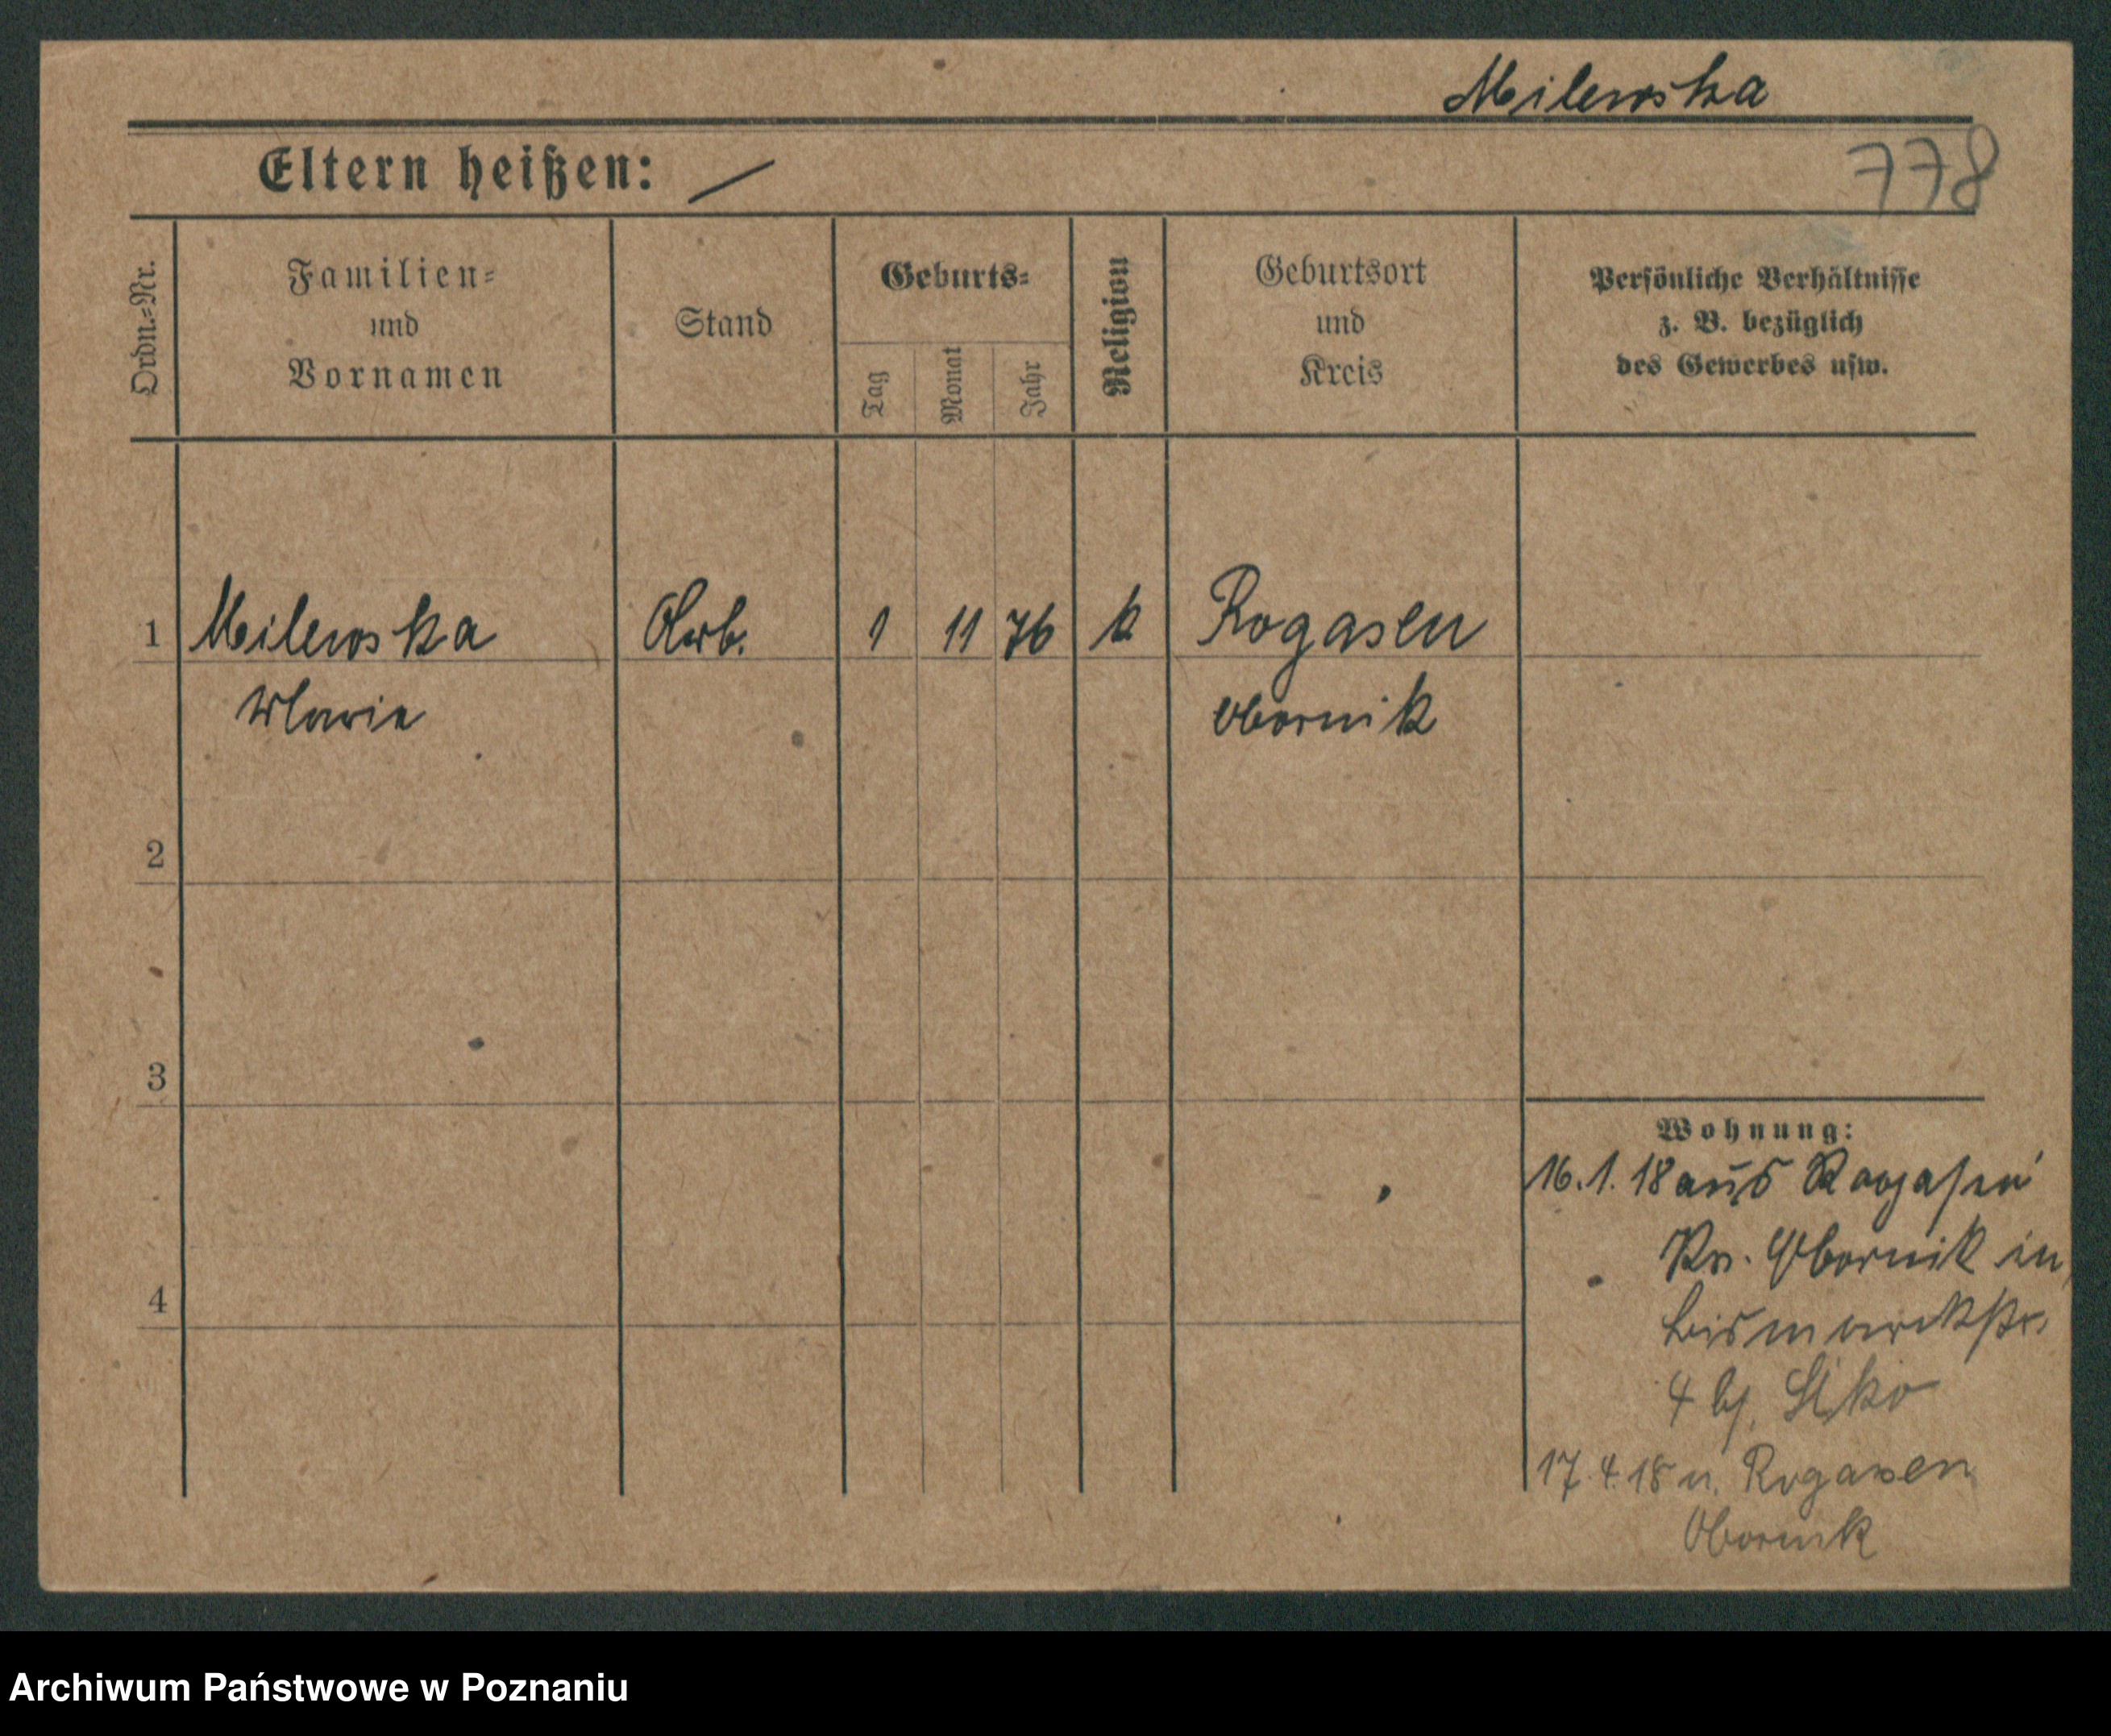 Milewska
Eltern heißen: /
778
Ordn.=Nr.
Familien=
und
Vornamen
Stand
Geburts=
Tag
Monat
Jahr
Religion
Geburtsort
und
Kreis
Persönliche Verhältnisse
z. B. bezüglich
des Gewerbes usw.
1 Milewska Arb. 1 11 76 k Rogasen
Marie Obornik
2
3
4
Wohnung:
16.1.18 aus Rogasen
Kr. Obornik in
Bismarckstr.
4 bj.
17.4.18 n. Rogasen
Obornik
Archiwum Państwowe w Poznaniu